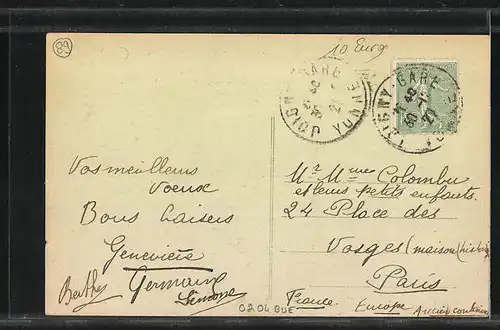 89
10 Euros
JOIGNY GARE
YONNE
JOIGNY GARE
YONNE
Vos meilleurs
voeux
Bons baisers
Geneviève
Berthe Germaine
Simone
Mr Mme Colombu
et leurs petits enfants.
24 Place des
Vosges (maison
Paris
France Europe
0204 BUE